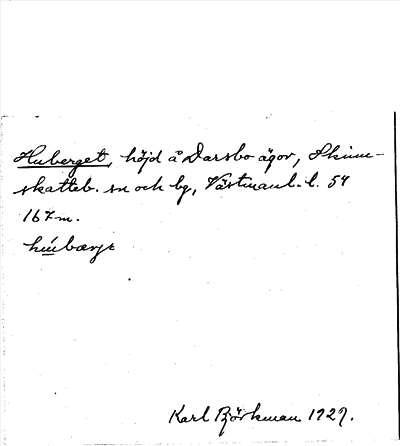 Huberget, höjd å Darsbo ägor, Skinn-
skatteb. sn och bg, Västmanl. l. 54
167 m.
hʉ́bærjt
Karl Björkman 1927.